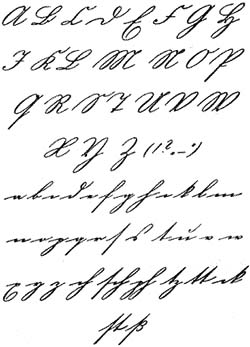 A B C D E F G H
I K L M N O P
Q R S T U V W
X Y Z (!?
a b c d e f g h i k l m
n o p q r ſ s t u v w
x y z ch ſch tz tt ck
ſt ß